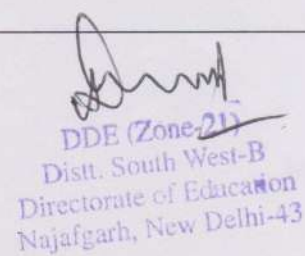 DDE (Zone-21)
Distt. South West-B
Directorate of Education
Najafgarh, New Delhi-43